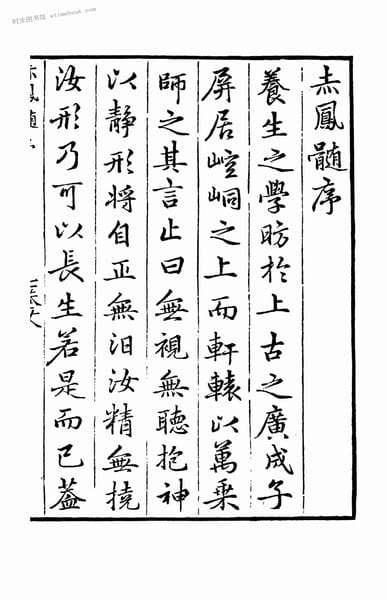 时光图书馆 · stimebook.com
赤鳳髓序
養生之學昉於上古之廣成子
屏居崆峒之上而軒轅以萬乗
師之其言止曰無視無聽抱神
以静形将自正無汨汝精無撓
汝形乃可以長生若是而已蓋
赤鳳髓序